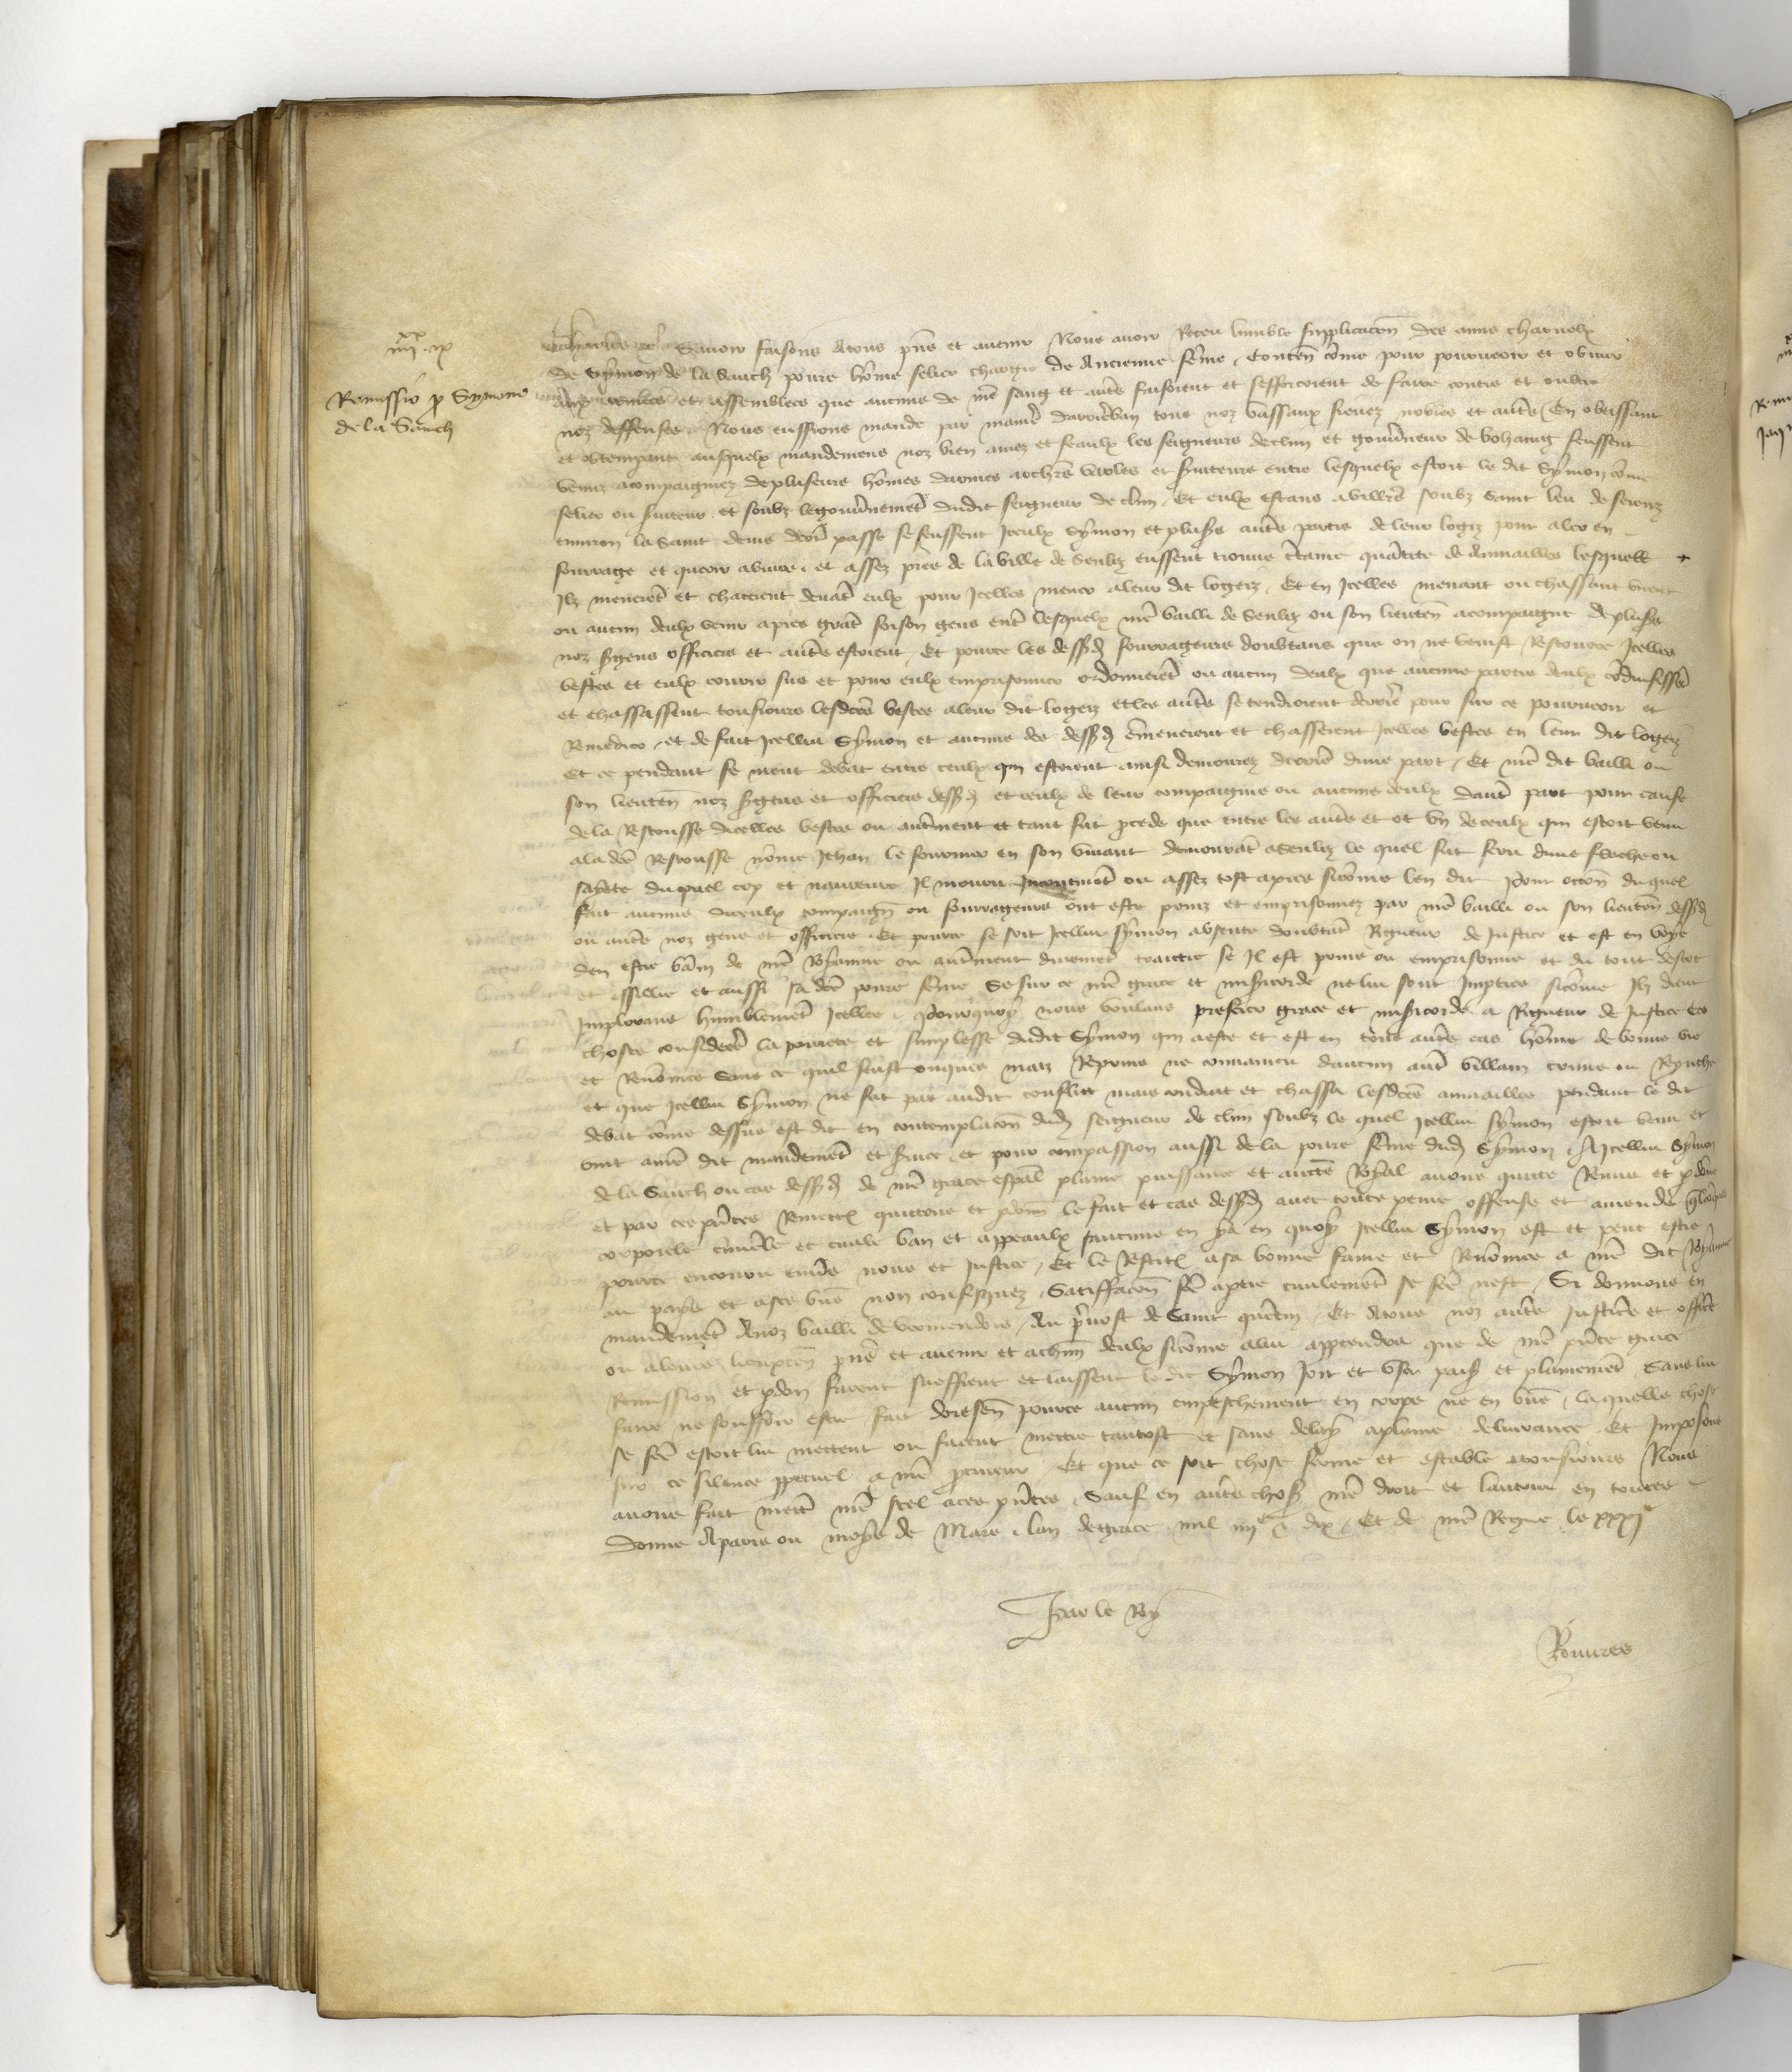 iiii xx ix
Remissio p Symone
de la Sauch
Charles etc Savoir faisons Atous pns et avenir Nous avoir Receu humble supplicacon des amis charnelx
de Symon de la Sauch povre home selier chargie de Ancienne feme, Conten come pour pourveoir et obvier
et assemblees que aucuns de nre sang et autres faisoient et sefforcoient de faire contre et oultre
noz deffenses Nous eussions mande par manre darriereban tous noz vassaulx fievez nobles et autres En obeissant
et obtemperant ausquelx mandemens noz bien amez et feaulx les seigneurs de clun et gouvneur de bohaing feussent
venuz acompaigniez de pluseurs homes darmes archrs varles et suiteurs entre lesquelx estoit le dit Symon come
selier ou suiteur et soubz le gouvnement dudit seigneur de clun, Et eulx estans a soubz Saint leu de serens
environ la Saint denis derr passe se feussent Iceulx Symon et plusrs autres partis de leur logiz pour aler en
fourrage et querir vivres, et assez pres de la ville de Senliz eussent trouve ctaine quantite de Aumailles lesquell
Ilz menerent et chacerent devant eulx pour Icelles mener a leur dit logeiz, Et en Icelles menant ou chassant virent
ou aucun deulx venir apres grant foison gens entre lesquelx nre bailli de Senliz ou son lieuten acompaigne de plusrs
noz sergens officiers et autres estoient, Et pource les dessusd fourrageurs doubtans que on ne venist Rescourre Icelles
bestes et eulx courir sus et pour eulx emprisonner ordonnerent ou aucun deulx que aucune partie deulx conduisissent
et chassassent tousiours lesdictes bestes a leur dit logeiz et les autres se tendroient derriere pour sur ce pourveoir et
Remedier, et de fait Icellui Symon et aucuns des dessusd emmenerent et chasserent Icelles bestes en leur dit logeiz
Et ce pendant se meut debat entre ceulx qui estoient ainsi demourez derriere dune part, Et nre dit bailli ou
son lieuten noz sergens et officiers dessusd et ceulx de leur compaignie ou aucuns deulx dautre part pour cause
de la Rescousse dicelles bestes ou autrement et tant fut procede que entre les autres et ot un de ceulx qui estoit venu
a la dicte Rescousse nomme Jehan le fournier en son vivant demourant a Senliz le quel fut feru dune flesche ou
sayete du quel cop et navreure Il mouru Incontinent ou assez tost apres sicomme len dit Pour occon du quel
fait aucuns diceulx compaign ou fourrageurs ont este prins et emprisonnez par nre bailli ou son lieuten dessusd
ou autres noz gens et officiers, Et pource se soit Icellui Symon absente doubtant Rigueur de Justice et est en voye
den estre banni de nre Royaume ou autrement durement traictie se Il est prins ou emprisonne et du tout desert
et et aussi sa dicte povre feme Se sur ce nre grace et misericorde ne lui sont Imparties sicomme Ilz dient
Implorans humblement Icelles, Pourquoy nous voulans preferer grace et misericorde a Rigueur de Justice Ces
choses considerees la povrete et simplesse dudit Symon qui a este et est en touz autres cas home de bonne vie
et Renommee Sans ce quil feust onques mais Reprins ne convaincu daucun autre villain crime ou Reprouche
et que Icellui Symon ne fut pas audit conflict mais conduit et chassa lesdictes aumailles pendant le dit
debat comme dessus est dit en contemplacon dud seigneur de clun soubz le quel Icellui Symon estoit venu et
vint a nre dit mandement et service, et pour compassion aussi de la povre feme dud Symon, A Icellui Symon
de la Sauch ou cas dessusd de nre grace especial plaine puissance et auctorite Royal avons quicte Remis et pardonne
et par ces presentes Remettons quictons et pardonnons le fait et cas dessusd avec toute peine offense et amende
corporele criminele et civile ban et appeaulx saucuns en y a en quoy Icellui Symon est et peut estre
pource encouru envers nous et Justice, Et le Restituons a sa bonne fame et Renommee a nre dit Royaume
au pays et a ses biens non confisquez, Satiffacon faicte a partie civilement se faicte nest, Si donnons en
mandement A noz bailli de vermendois, Au prevost de Saint quentin, Et A tous noz autres Justiciers et officiers
ou a leurs lieuxten pns et avenir et a chacun deulx sicomme a lui appartendra que de nre presente grace
Remission et pardon facent sueffrent et laissent le dit Symon Joir et user paisiblement et plainement Sans lui
faire ne souffrir estre fait doresen pource aucun empeschement en corps ne en biens, laquelle chose
se faicte estoit lui mettent ou facent mettre tantost et sans delay a plaine delivrance, Et Imposons
sur ce silence perpetuel a nre procureur, Et que ce soit chose ferme et estable a tousiours Nous
avons fait mettre nre scel a ces presentes, Sauf en autres choses nre droit et lautrui en toutes
Donne A paris ou moys de Mars, lan de grace mil iiiic et dix, Et de nre Regne le xxxie
Par le Roy
Rouvres